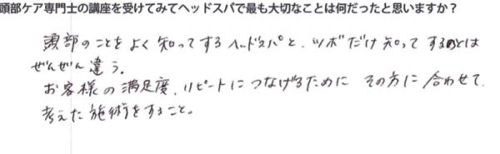 頭部ケア専門士の講座を受けてみてヘッドスパで最も大切なことは何だったと思いますか？
頭部のことをよく知ってするヘッドスパと、ツボだけ知ってするのとは
ぜんぜん違う。
お客様の満足度、リピートにつなげるために その方に合わせて
考えた施術をすること。